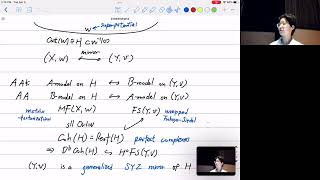 w "superpotential"
Crit(w) ≅ H
(X, w) mirror ⟷ (Y, v)
AAK A-model on H ⟷ B-model on (Y, v)
AA B-model on H ⟷ A-model on (Y, v)
matrix factorization MF(X, w) FS(Y, v) wrapped Fukaya-Seidel
SII Orlov
Coh(H) = Perf(H) perfect complexes
⇒ D^b Coh(H) ⟷ H^0 FS(Y, v)
(Y, v) is a generalized SYZ mirror of H